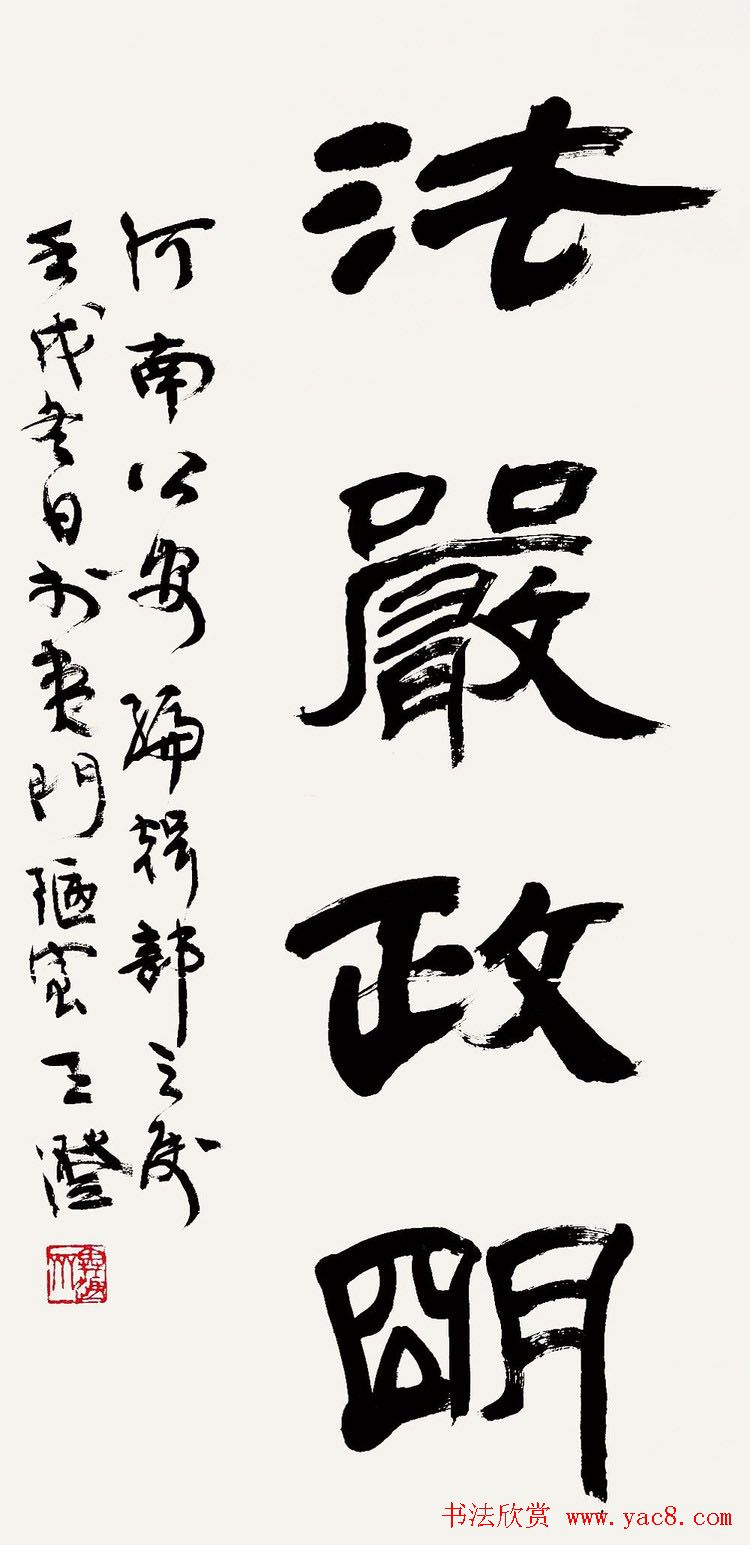 法嚴政朙
河南公安編輯部之屬
壬戌冬日於夷門陋室王澄
书法欣赏 www.yac8.com